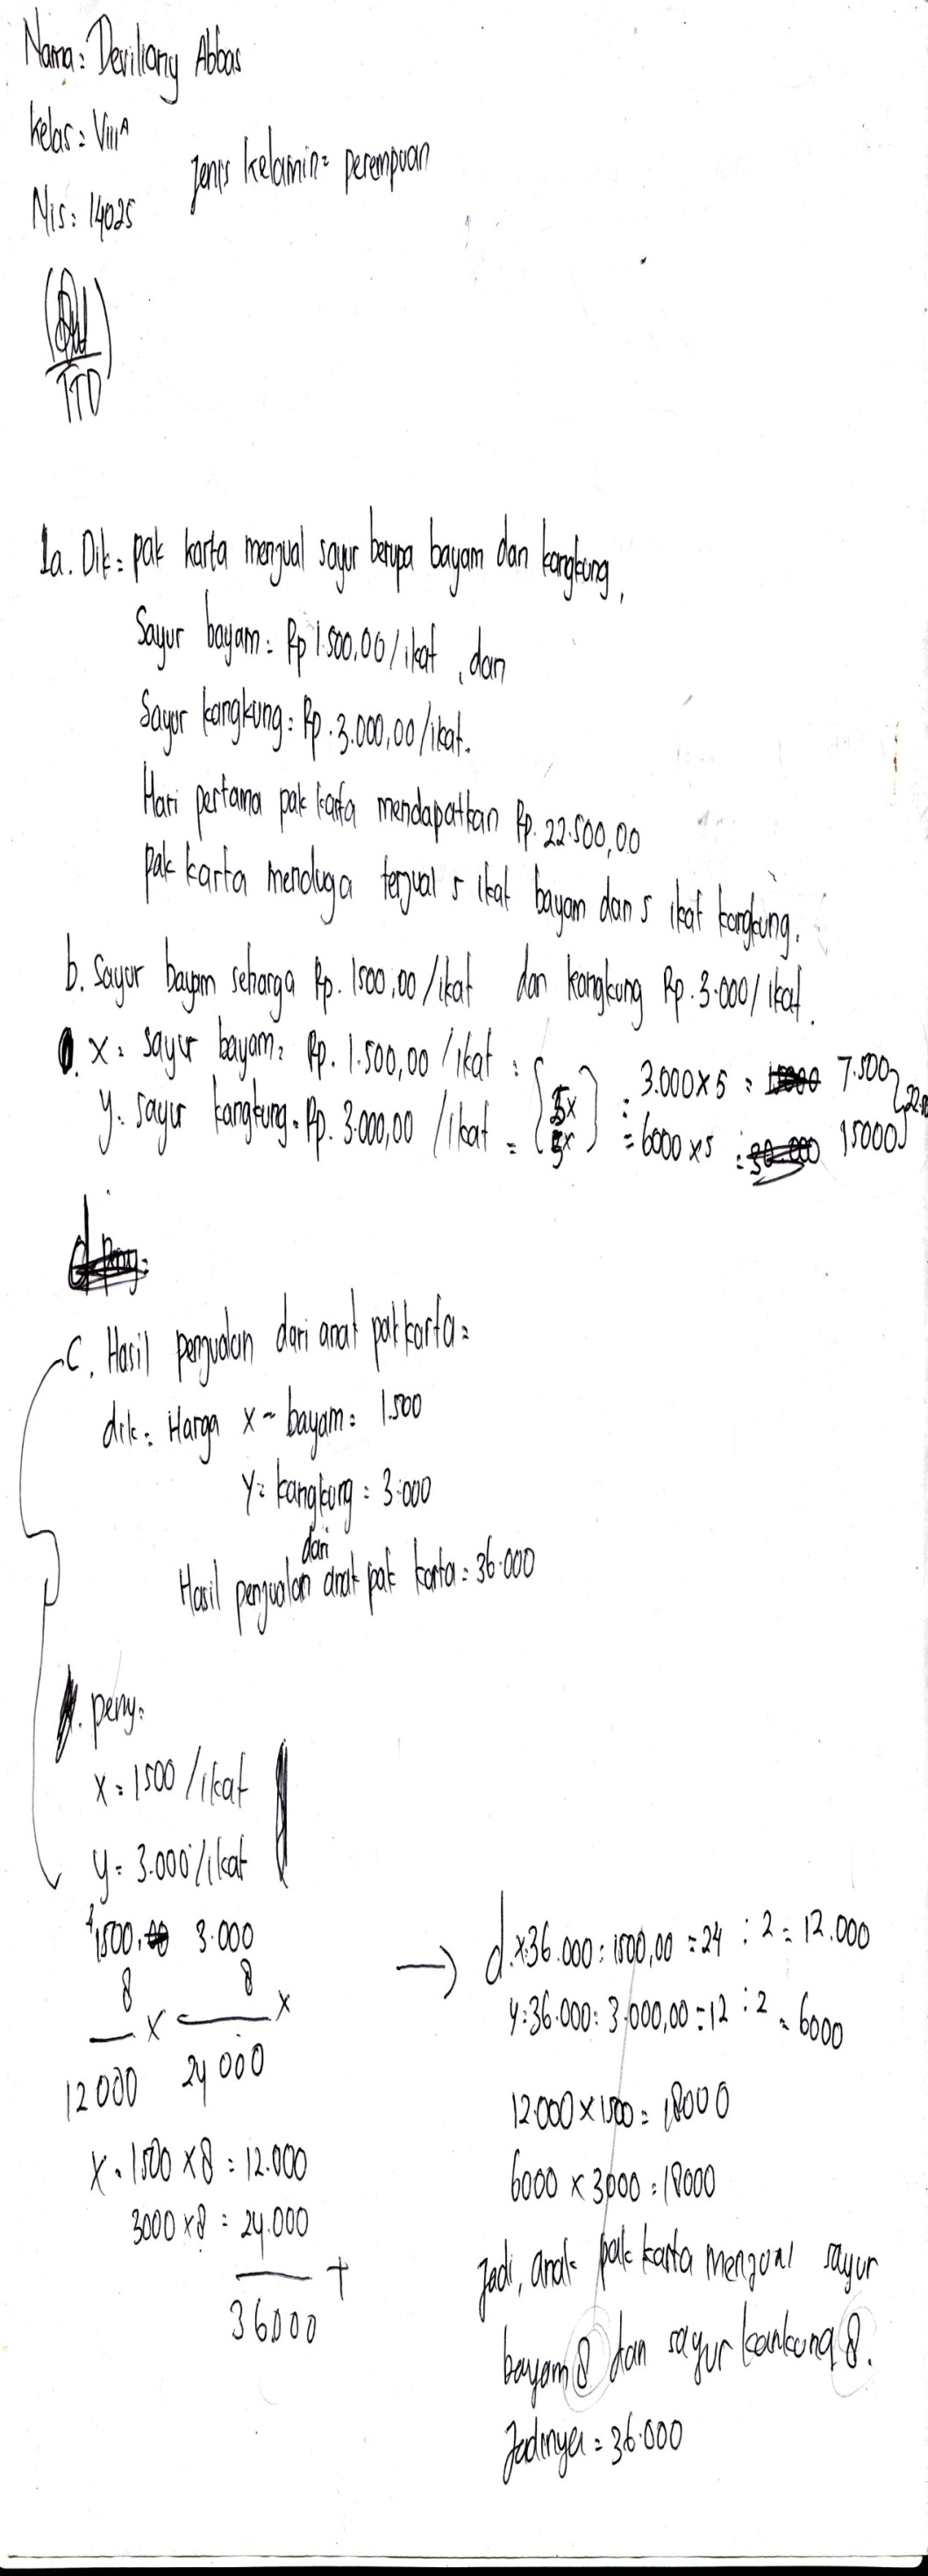 Nama: Deviliany Abbas
Kelas: VIII A
Jenis kelamin: perempuan
Nis: 14025
TTD
1a. Dik: pak karta menjual sayur berupa bayam dan kangkung,
Sayur bayam: Rp 1.500,00/ikat, dan
Sayur kangkung: Rp. 3.000,00/ikat.
Hari pertama pak karta mendapatkan Rp. 22.500,00
pak karta menduga terjual 5 ikat bayam dan 5 ikat kangkung.
b. Sayur bayam seharga Rp. 1500,00/ikat dan kangkung Rp. 3.000/ikat.
x = sayur bayam = Rp. 1.500,00/ikat = 5x : 3.000 x 5 = 7.500
y = sayur kangkung = Rp. 3.000,00/ikat = 5x = 6000 x 5 = 15000
C. Hasil penjualan dari anak pak karta =
dik: Harga x - bayam = 1.500
y = kangkung = 3.000
Hasil penjualan dari anak pak karta = 36.000
peny:
x = 1500/ikat
y = 3.000/ikat
1500, 3.000
8 x 8 x
12000 24000
x. 1500 x 8 = 12.000
3000 x 8 = 24.000
+
36000
d. x: 36.000 : 1500,00 = 24 : 2 = 12.000
y: 36.000 : 3.000,00 = 12 : 2 = 6000
12.000 x 1500 = 18000
6000 x 3000 = 18000
Jadi, anak pak karta menjual sayur
bayam 8 dan sayur kankung 8.
Jadinya = 36.000